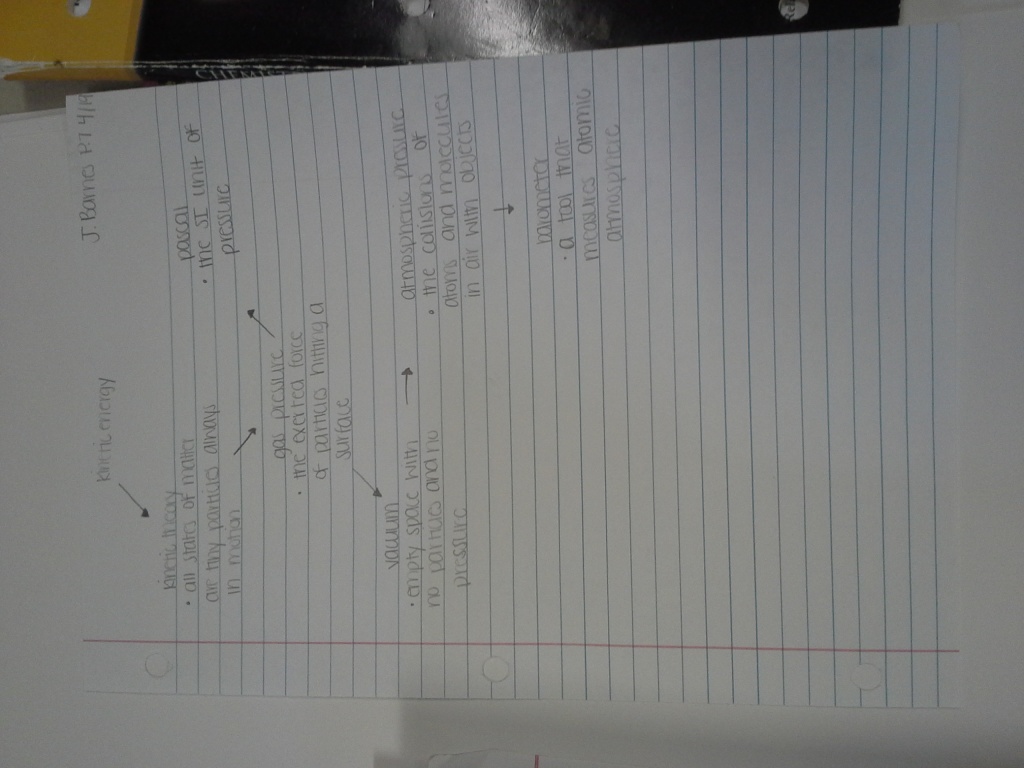 J. Barnes P.7 4/19
kinetic energy
kinetic theory
• all states of matter
are tiny particles always
in motion
pascal
• the SI unit of
pressure
gas pressure
• the exerted force
of particles hitting a
surface
vacuum
• empty space with
no particles and no
pressure
atmospheric pressure
• the collisions of
atoms and molecules
in air with objects
barometer
• a tool that
measures atomic
atmosphere